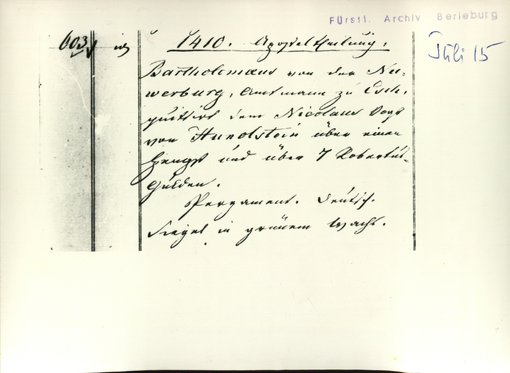 Fürstl. Archiv Berleburg
603
1410. Apostelteilung.
Juli 15
Bartholomäus von der Nu-
werburg, Amtmann zu Esch
quittirt dem Nicolaus Vogt
von Hunolstein über einen
Hengst und über 7 Robertus-
Gulden.
Pergament. Deutsch.
Siegel in grünem Wachs.